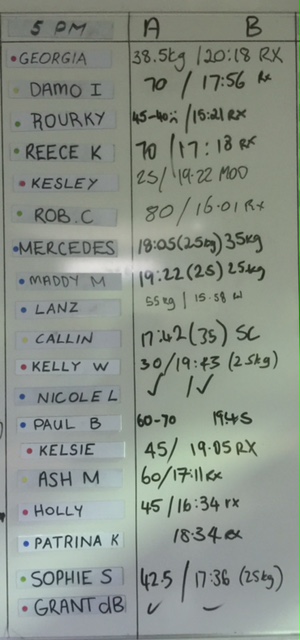 5 PM A B
GEORGIA 38.5kg / 20:18 RX
DAMO I 70 / 17:56 Rx
ROURKY 45-40 / 15:21 RX
REECE K 70 / 17:18 RX
KESLEY 25 / 19:22 MOD
ROB.C 80 / 16:01 Rx
MERCEDES 18:05 (25kg) 35kg
MADDY M 19:22 (25) 25kg
LANZ 55kg / 15:58
CALLIN 17:42 (35) SC
KELLY W 30 / 19:43 (25kg)
NICOLE L ✓ / ✓
PAUL B 60-70
KELSIE 45 / 19:05 RX
ASH M 60/17:11 RX
HOLLY 45 / 16:34 rx
PATRINA K 18:34 RX
SOPHIE S 42.5 / 17:36 (25kg)
GRANT dB ✓